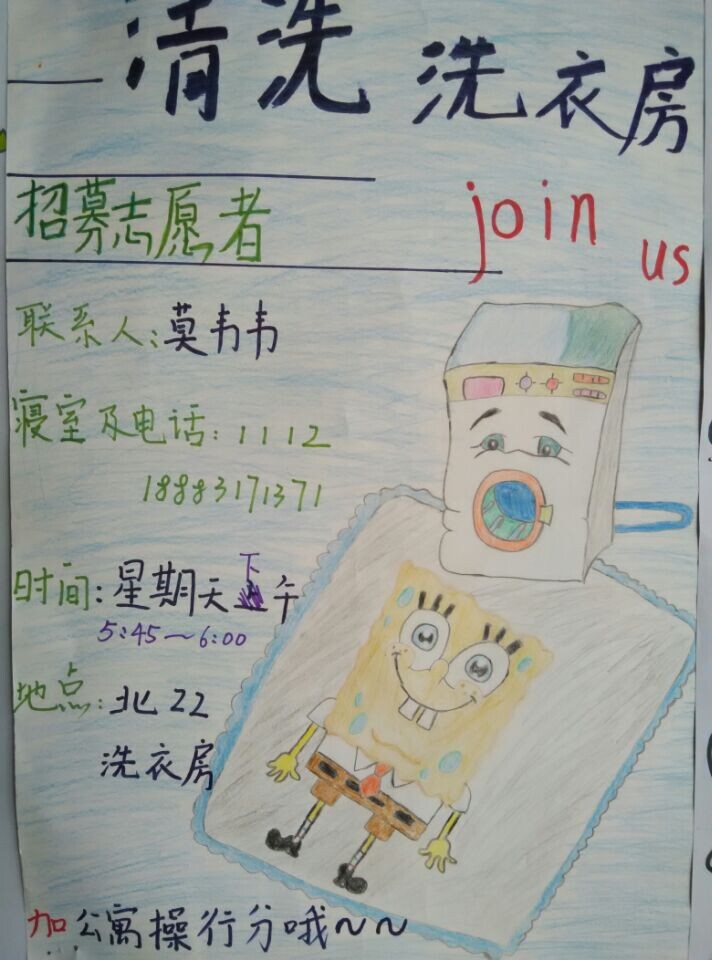 清洗 洗衣房
招募志愿者
join us
联系人:莫韦韦
寝室及电话:1112
18883171371
时间:星期天下午
5:45~6:00
地点:北22
洗衣房
加公寓操行分哦~~